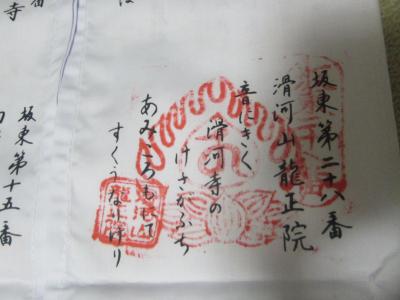 坂東第二十八番
滑河山龍正院
音にきく
滑河寺の
けさがふち
あみころもにて
すくうなりけり
坂東第十五番
番
寺